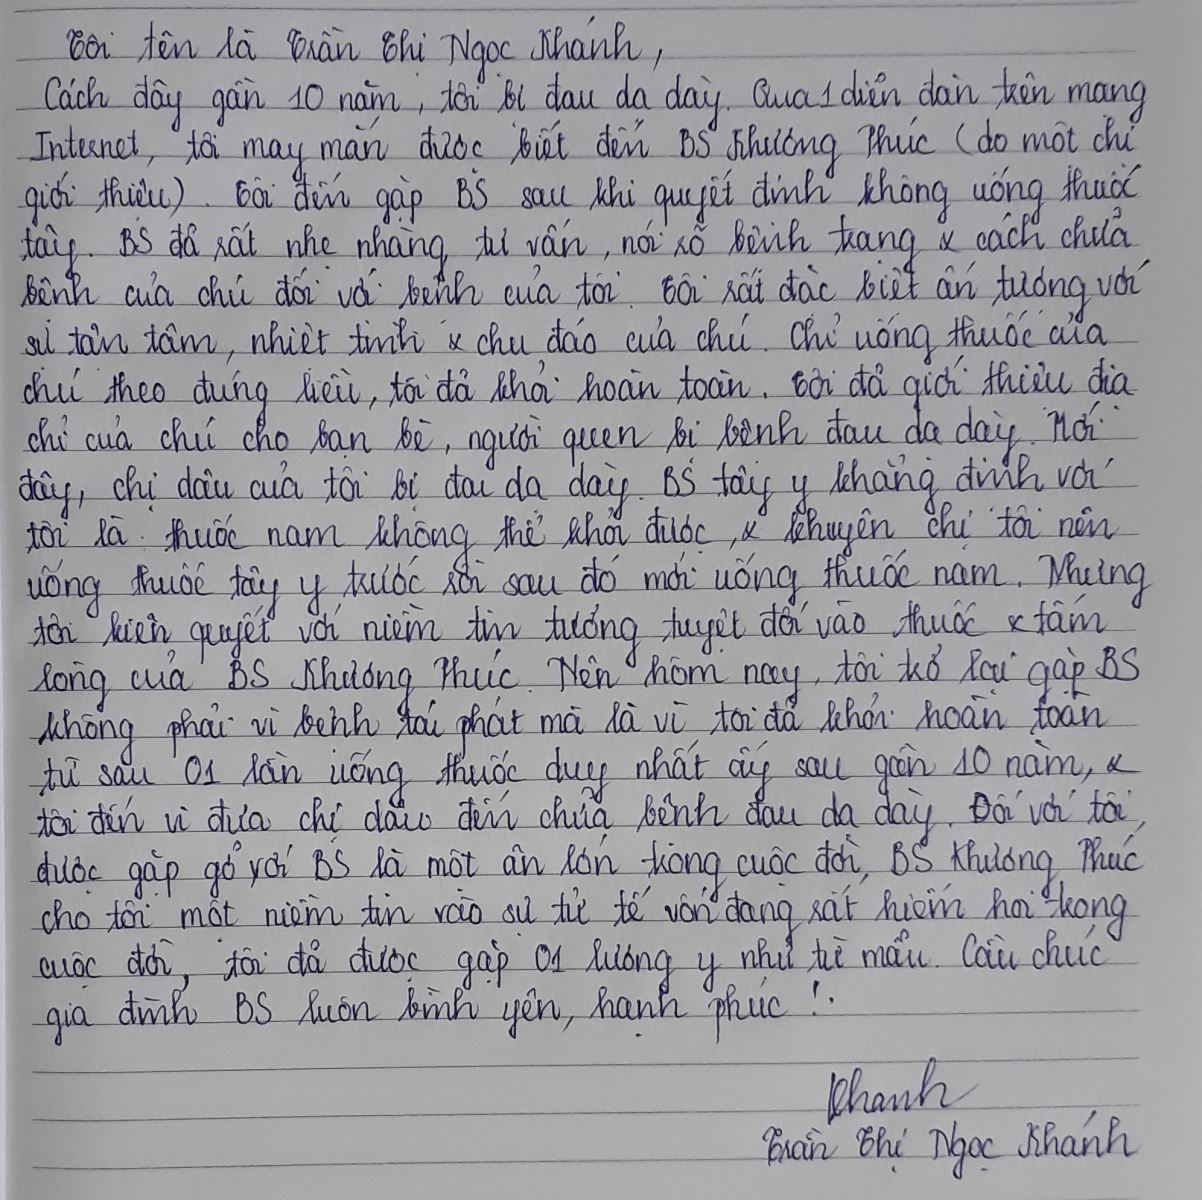 Tôi tên là Trần Thị Ngọc Khánh,
Cách đây gần 10 năm, tôi bị đau dạ dày. Qua 1 diễn đàn trên mạng
Internet, tôi may mắn được biết đến BS Khương Phúc (do một chị
giới thiệu). Tôi đến gặp BS sau khi quyết định không uống thuốc
tây. BS đã rất nhẹ nhàng, tư vấn, nói rõ bệnh trạng & cách chữa
bệnh của chú đối với bệnh của tôi. Tôi rất đặc biệt ấn tượng với
sự tận tâm, nhiệt tình & chu đáo của chú. Chỉ uống thuốc của
chú theo đúng liều, tôi đã khỏi hoàn toàn. Tôi đã giới thiệu địa
chỉ của chú cho bạn bè, người quen bị bệnh đau dạ dày. Mới
đây, chị dâu của tôi bị đau dạ dày. BS tây y khẳng định với
tôi là thuốc nam không thể khỏi được, & khuyên chị tôi nên
uống thuốc tây y trước rồi sau đó mới uống thuốc nam. Nhưng
tôi kiên quyết với niềm tin tưởng tuyệt đối vào thuốc & tấm
lòng của BS Khương Phúc. Nên hôm nay, tôi trở lại gặp BS
không phải vì bệnh tái phát mà là vì tôi đã khỏi hoàn toàn
từ sau 01 lần uống thuốc duy nhất ấy sau gần 10 năm, &
tôi đến vì đưa chị dâu đến chữa bệnh đau dạ dày. Đối với tôi,
được gặp gỡ với BS là một ân lớn trong cuộc đời, BS Khương Phúc
cho tôi một niềm tin vào sự tử tế vốn đang rất hiếm hoi trong
cuộc đời, tôi đã được gặp 01 lương y như từ mẫu. Cầu chúc
gia đình BS luôn bình yên, hạnh phúc!.
Khanh
Trần Thị Ngọc Khánh